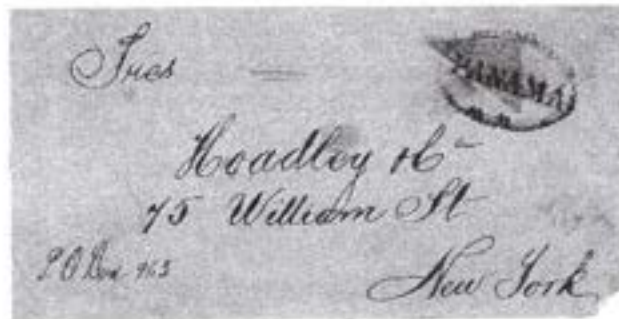 Sres
PANAMA
Hoadley & Co
75 William St
P O Box 963
New York